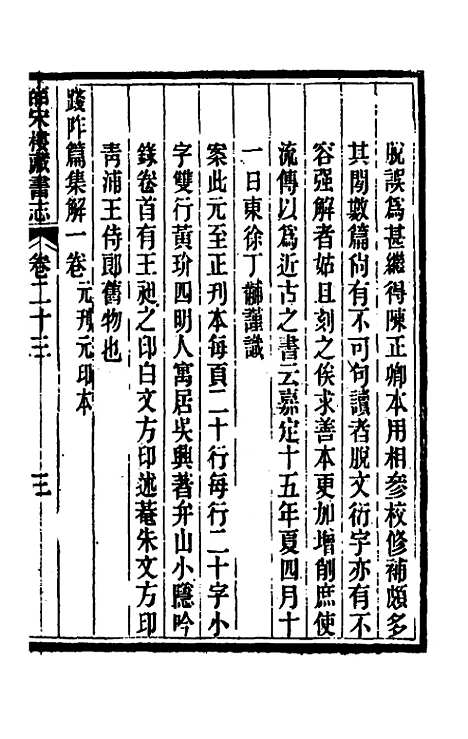 脫誤爲甚繼得陳正卿本用相參校修補頗多
其閒數篇尙有不可句讀者脫文衍字亦有不
容强解者姑且刻之俟求善本更加增削庶使
流傳以爲近古之書云嘉定十五年夏四月十
一日東徐丁黼謹識
案此元至正刊本每頁二十行每行二十字小
字雙行黃玠四明人寓居吳興著弁山小隱吟
錄卷首有王昶之印白文方印述菴朱文方印
靑浦王侍郎舊物也
踐阼篇集解一卷 元刊元印本
皕宋樓藏書志 卷二十三 三